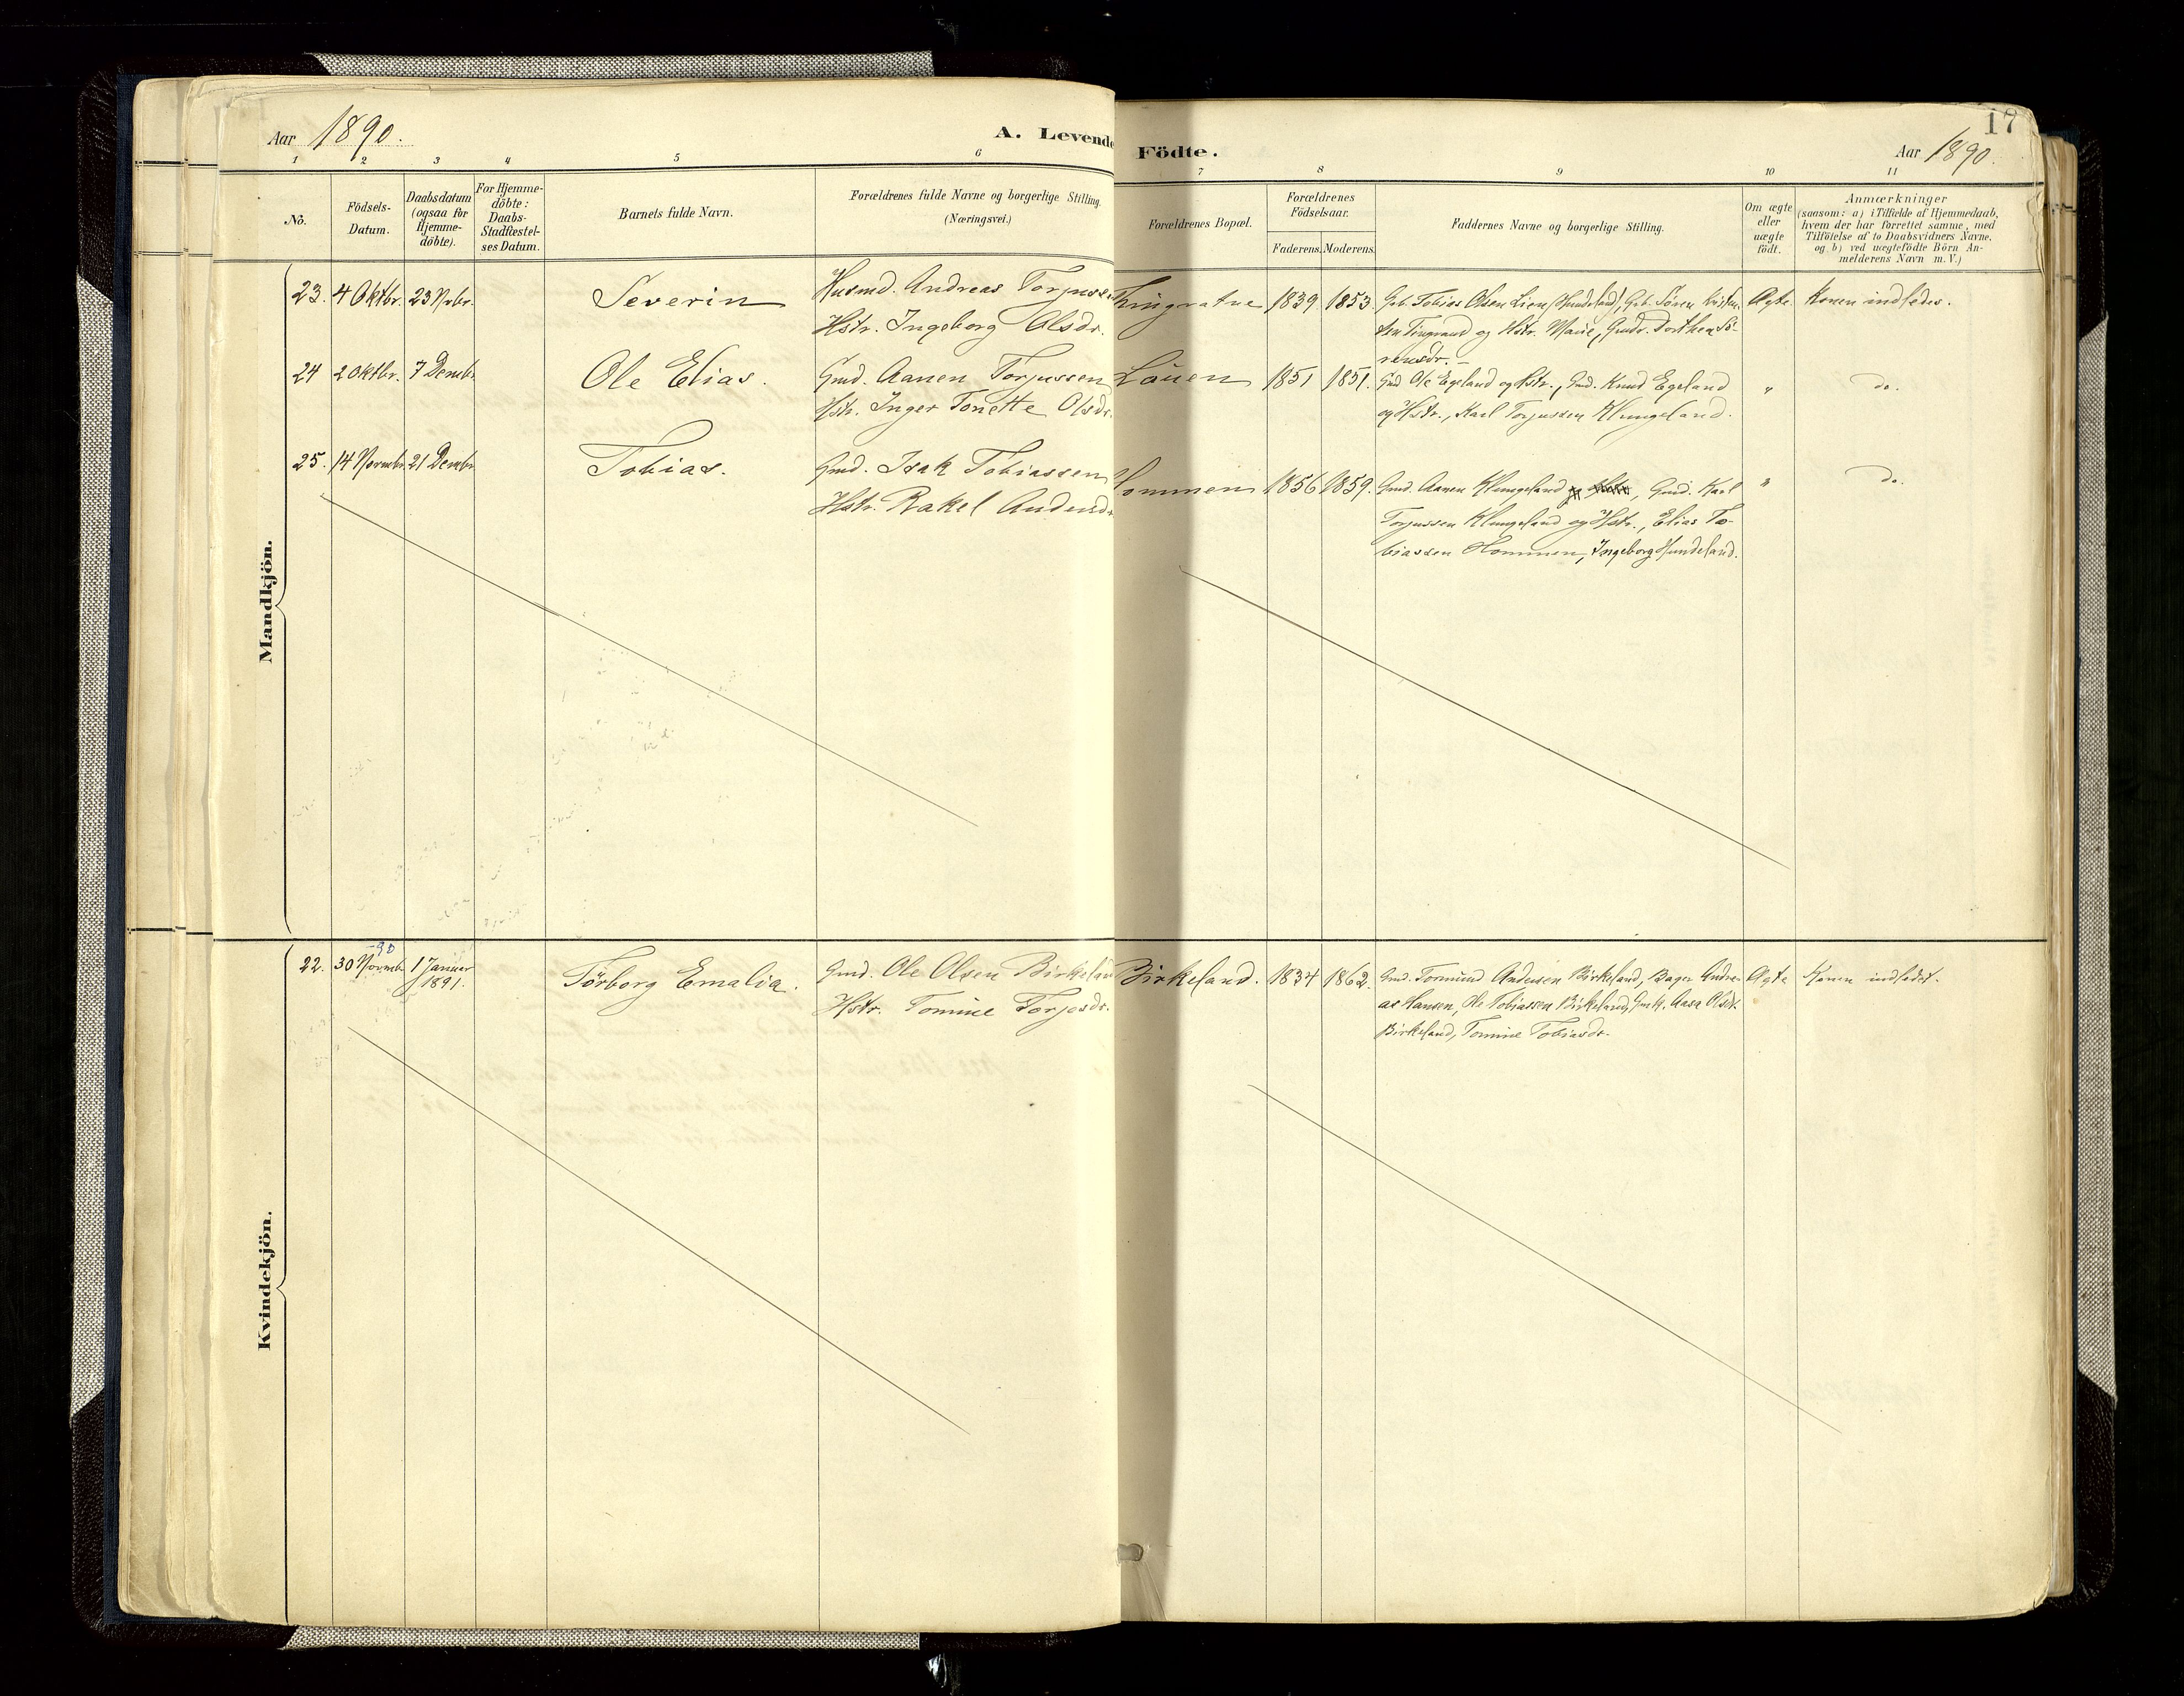 Aar 1890.
A. Levende Födte.
17
Aar 1890.
1 2 3 4 5 6 7 8 9 10 11
No.
Födsels-
Datum.
Daabsdatum
(ogsaa for
Hjemme-
döbte).
For Hjemme-
döbte:
Daabs-
Stadfæstel-
ses Datum.
Barnets fulde Navn.
Forældrenes fulde Navne og borgerlige Stilling.
(Næringsvei.)
Forældrenes Bopæl.
Forældrenes
Födselsaar.
Faderens. Moderens.
Faddernes Navne og borgerlige Stilling.
Om ægte
eller
uægte
födt.
Anmærkninger
(saasom: a) i Tilfælde af Hjemmedaab,
hvem der har forrettet samme, med
Tilföielse af to Daabsvidners Navne,
og b) ved uægtefödte Börn An-
melderens Navn m. V.)
Mandkjön.
23. 4 Oktbr. 23 Nvbr. Severin
Husmd. Andreas Torjussen
Hstr. Ingeborg Olsdr.
1839 1853.
Gbr. Tobias Olsen Lien (Hundeland), Gbr. Sören Kristen-
sen Tingvand og Hstr. Marie, Gmdr. Dorthea Sö-
rensdr. –
Ægte. Konen indledes.
24 2 Oktbr. 7 Dembr. Ole Elias.
Gmd. Aanen Torjussen
Hstr. Inger Tonette Olsdr.
Lauen 1851 1851.
Gmd Ole Egeland og Hstr., Gmd. Knud Egeland
og Hstr., Karl Torjussen Klungeland.
" do.
25. 14 Novmbr. 21 Dembr. Tobias.
Gmd. Isak Tobiassen
Hstr. Rakel Andersdr.
Hommen 1856 1859.
Gmd. Aanen Klungeland, Gmd. Karl
Torjussen Klungeland og Hstr., Elias To-
biassen Hommen, Ingeborg Hundeland.
" do.
Kvindekjön.
-90
22. 30 Novmb. 1 Januar
1891.
Törborg Emalia.
Gmd. Ole Olsen Birkeland
Hstr. Tomine Torjosdr.
Birkeland. 1834 1862.
Gmd. Tormund Andersen Birkeland, Bager Andre-
as Hansen, Ole Tobiassen Birkeland, Gmk. Aasa Olsdr.
Birkeland, Tomine Tobiasdr.
Ægte Konen indledet.